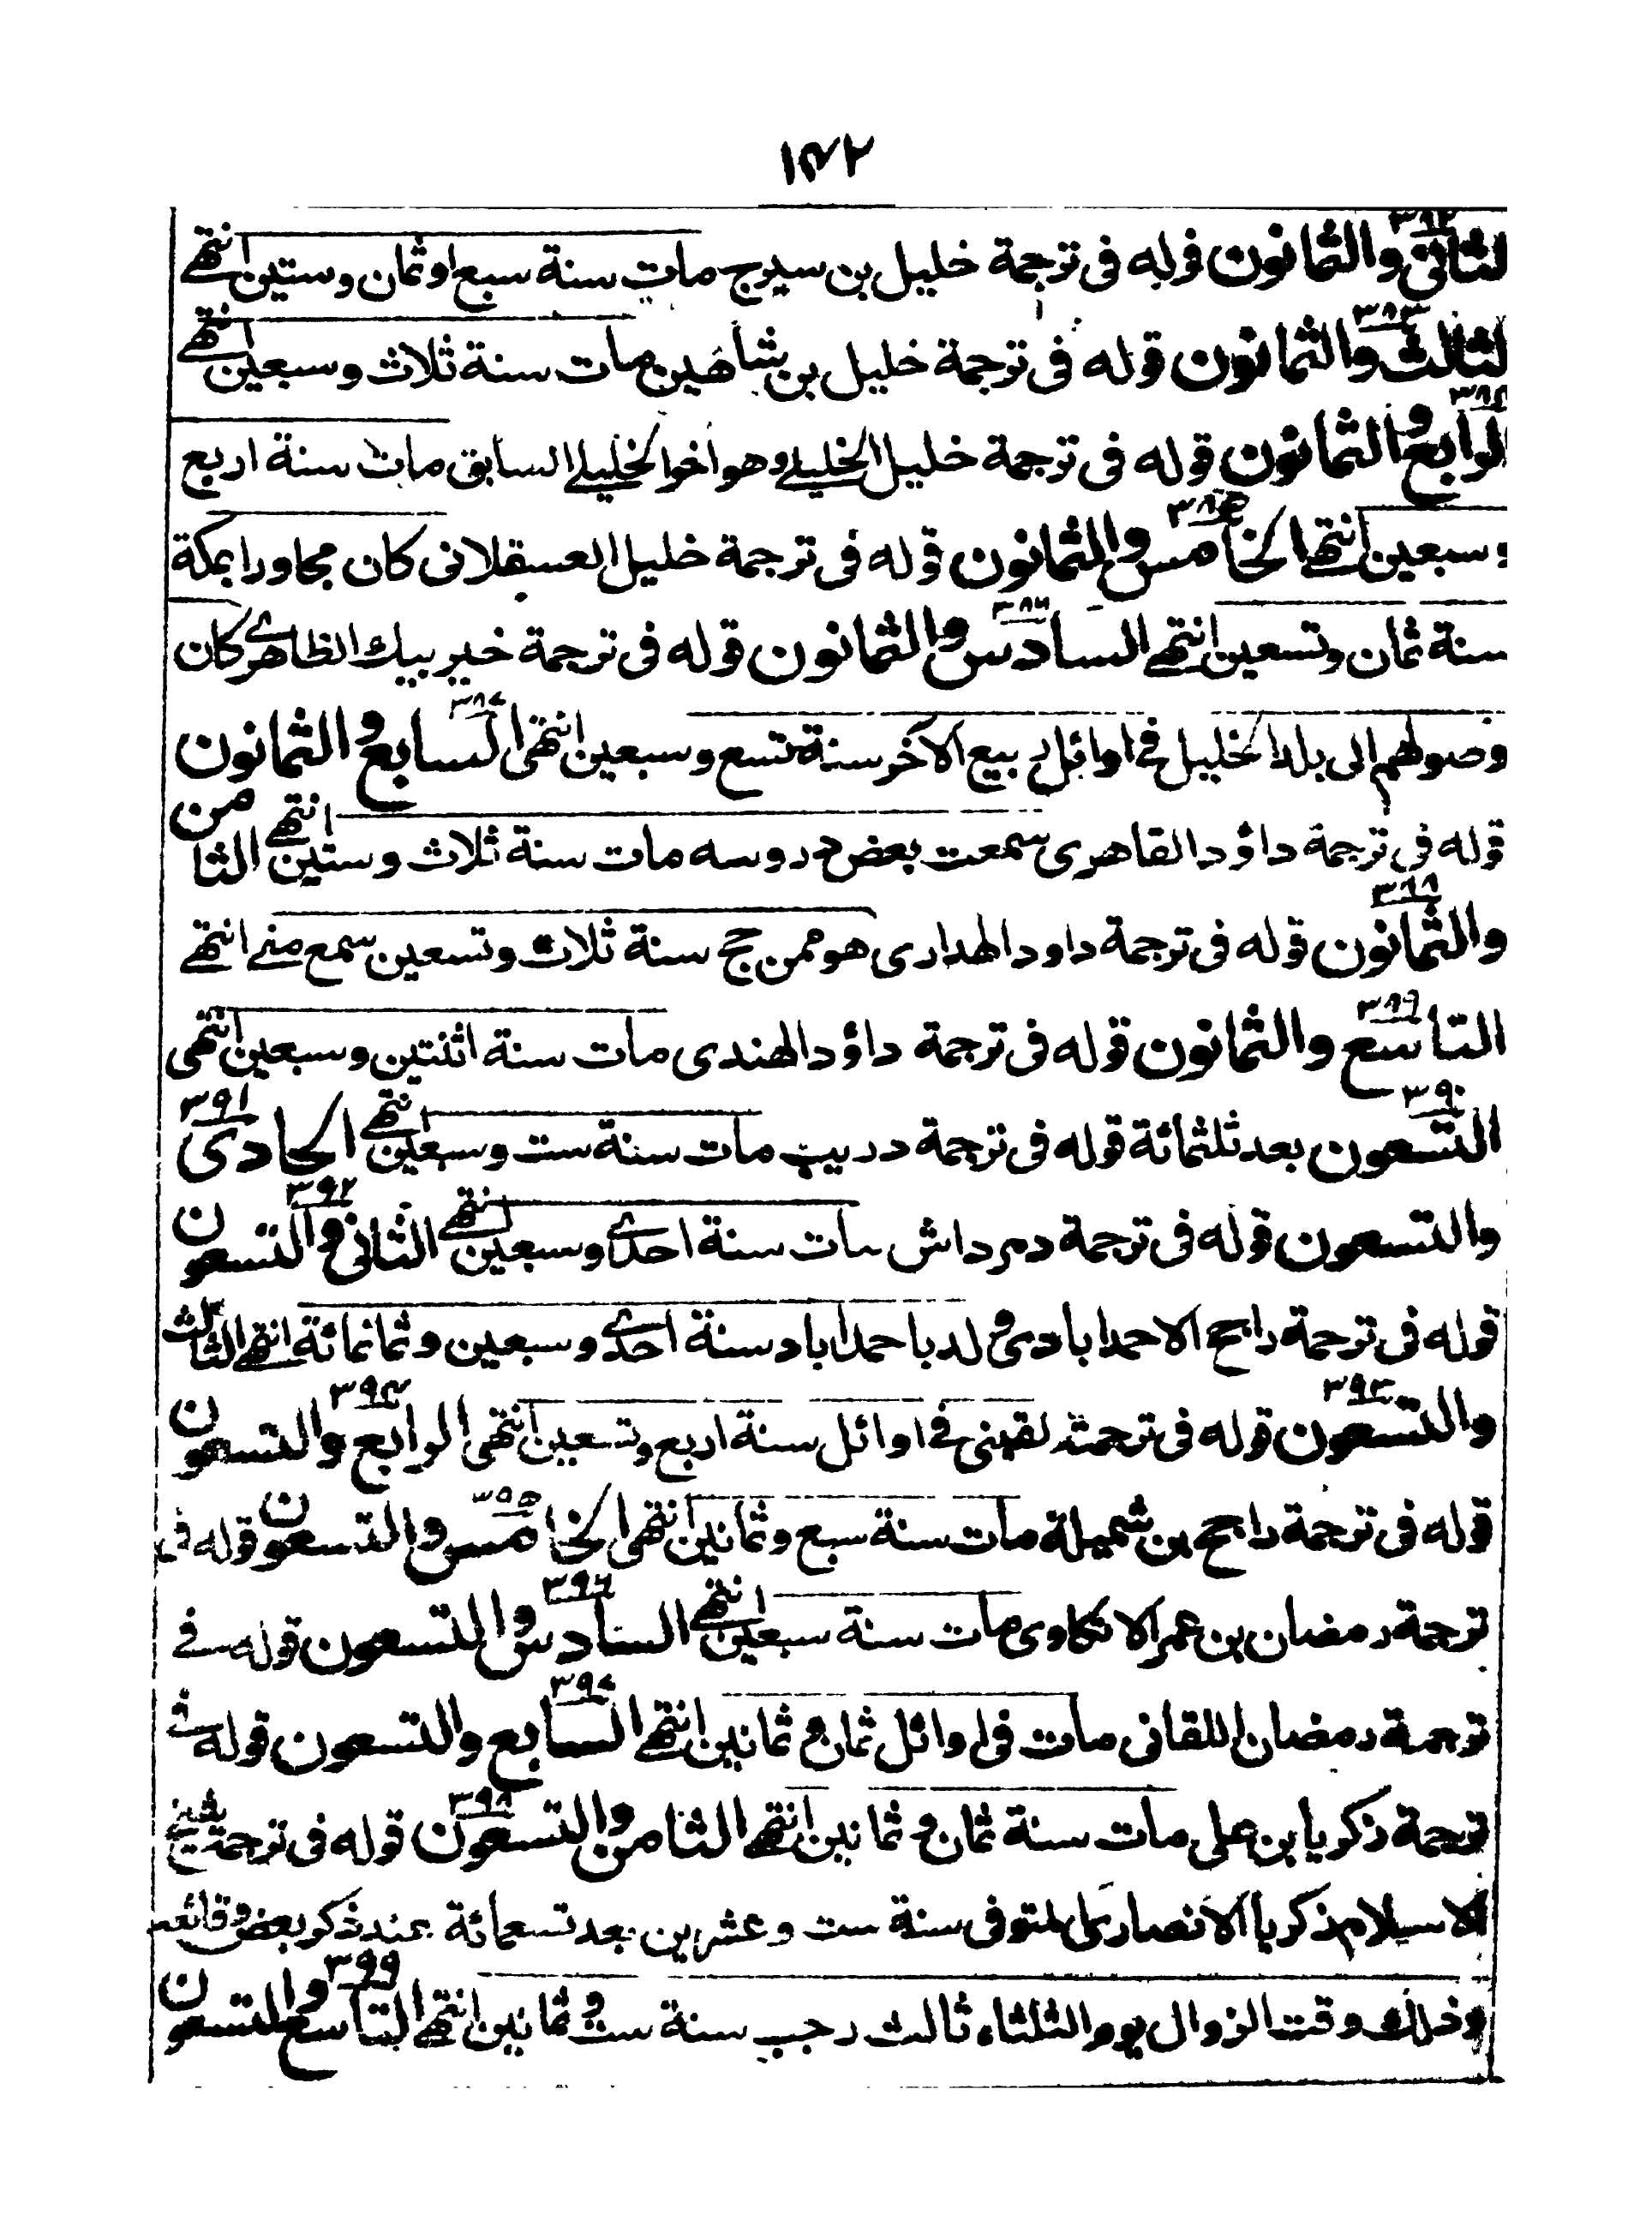 ١٤٢
٣٨٢
لثانی والثمانون قوله فی ترجمة خلیل بن سیرج مات سنة سبع اوثمان وستین انتھے
٣٨٣
لثالث والثمانون قوله فی ترجمة خلیل بن شاهین مات سنة ثلاث وسبعین انتھے
٣٨٤
لرابع والثمانون قوله فی ترجمة خلیل الخلیلے وهو اخو الخلیلے السابق مات سنة اربع
٣٨٥
وسبعین انتھے الخامس والثمانون قوله فی ترجمة خلیل العسقلانی کان مجاورا بمکة
٣٨٦
سنة ثمان وتسعین انتھے السادس والثمانون قوله فی ترجمة خیر بیك الظاهرے کان
٣٨٧
وصولهم الی بلد الخلیل فے اوائل ربیع الآخر سنة تسع وسبعین انتهی السابع والثمانون
قوله فی ترجمة داؤد القاهری سمعت بعض دروسه مات سنة ثلاث وستین انتھے الثامن
٣٨٨
والثمانون قوله فی ترجمة داود الهداری هو ممن حج سنة ثلاث وتسعین سمع منے انتھے
٣٨٩
التاسع والثمانون قوله فی ترجمة داؤد الهندی مات سنة اثنتین وسبعین انتهی
٣٩٠ ٣٩١
التسعون بعد ثلثمائة قوله فی ترجمة دریب مات سنة ست وسبعین انتھے الحادی
٣٩٢
والتسعون قوله فی ترجمة دمرداش مات سنة احدے وسبعین انتھے الثانی والتسعون
قوله فی ترجمة راجح الاحمدابادی ولد باحمداباد سنة احدے وسبعین وثمانمائة انتھے الثالث
٣٩٣ ٣٩٤
والتسعون قوله فی ترجمته لقینی فے اوائل سنة اربع وتسعین انتهی الرابع والتسعون
٣٩٥
قوله فی ترجمة راجح بن شمیلة مات سنة سبع وثمانین انتهی الخامس والتسعون قوله فی
٣٩٦
ترجمة رمضان بن عمر الاتکاوی مات سنة سبعین انتھے السادس والتسعون قوله فے
٣٩٧
ترجمة رمضان اللقانی مات فی اوائل ثمان وثمانین انتھے السابع والتسعون قوله فے
٣٩٨
ترجمة زکریا بن علی مات سنة ثمان وثمانین انتھے الثامن والتسعون قوله فی ترجمة شیخ
الاسلام زکریا الانصاری المتوفی سنة ست وعشرین بعد تسعمائة عند ذکر بعض وقائعه
٣٩٩
وذلك وقت الزوال یوم الثلثاء ثالث رجب سنة ست وثمانین انتھے التاسع والتسعون